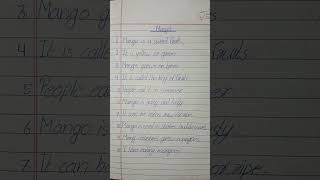 Mango
1. Mango is a sweet fruit.
2. It is yellow or green
3. Mango grows on trees
4. It is called the king of fruits
5. People eat it in summer
6. Mango is juicy and tasty
7. It can be eaten raw or ripe
8. Mango is used in shakes and ice cream
9. Many countries grow mangoes
10. I like eating mangoes
3 Mango
4 It is called
Fruits
5 People
6 Mango is
7 It can be
or ripe.